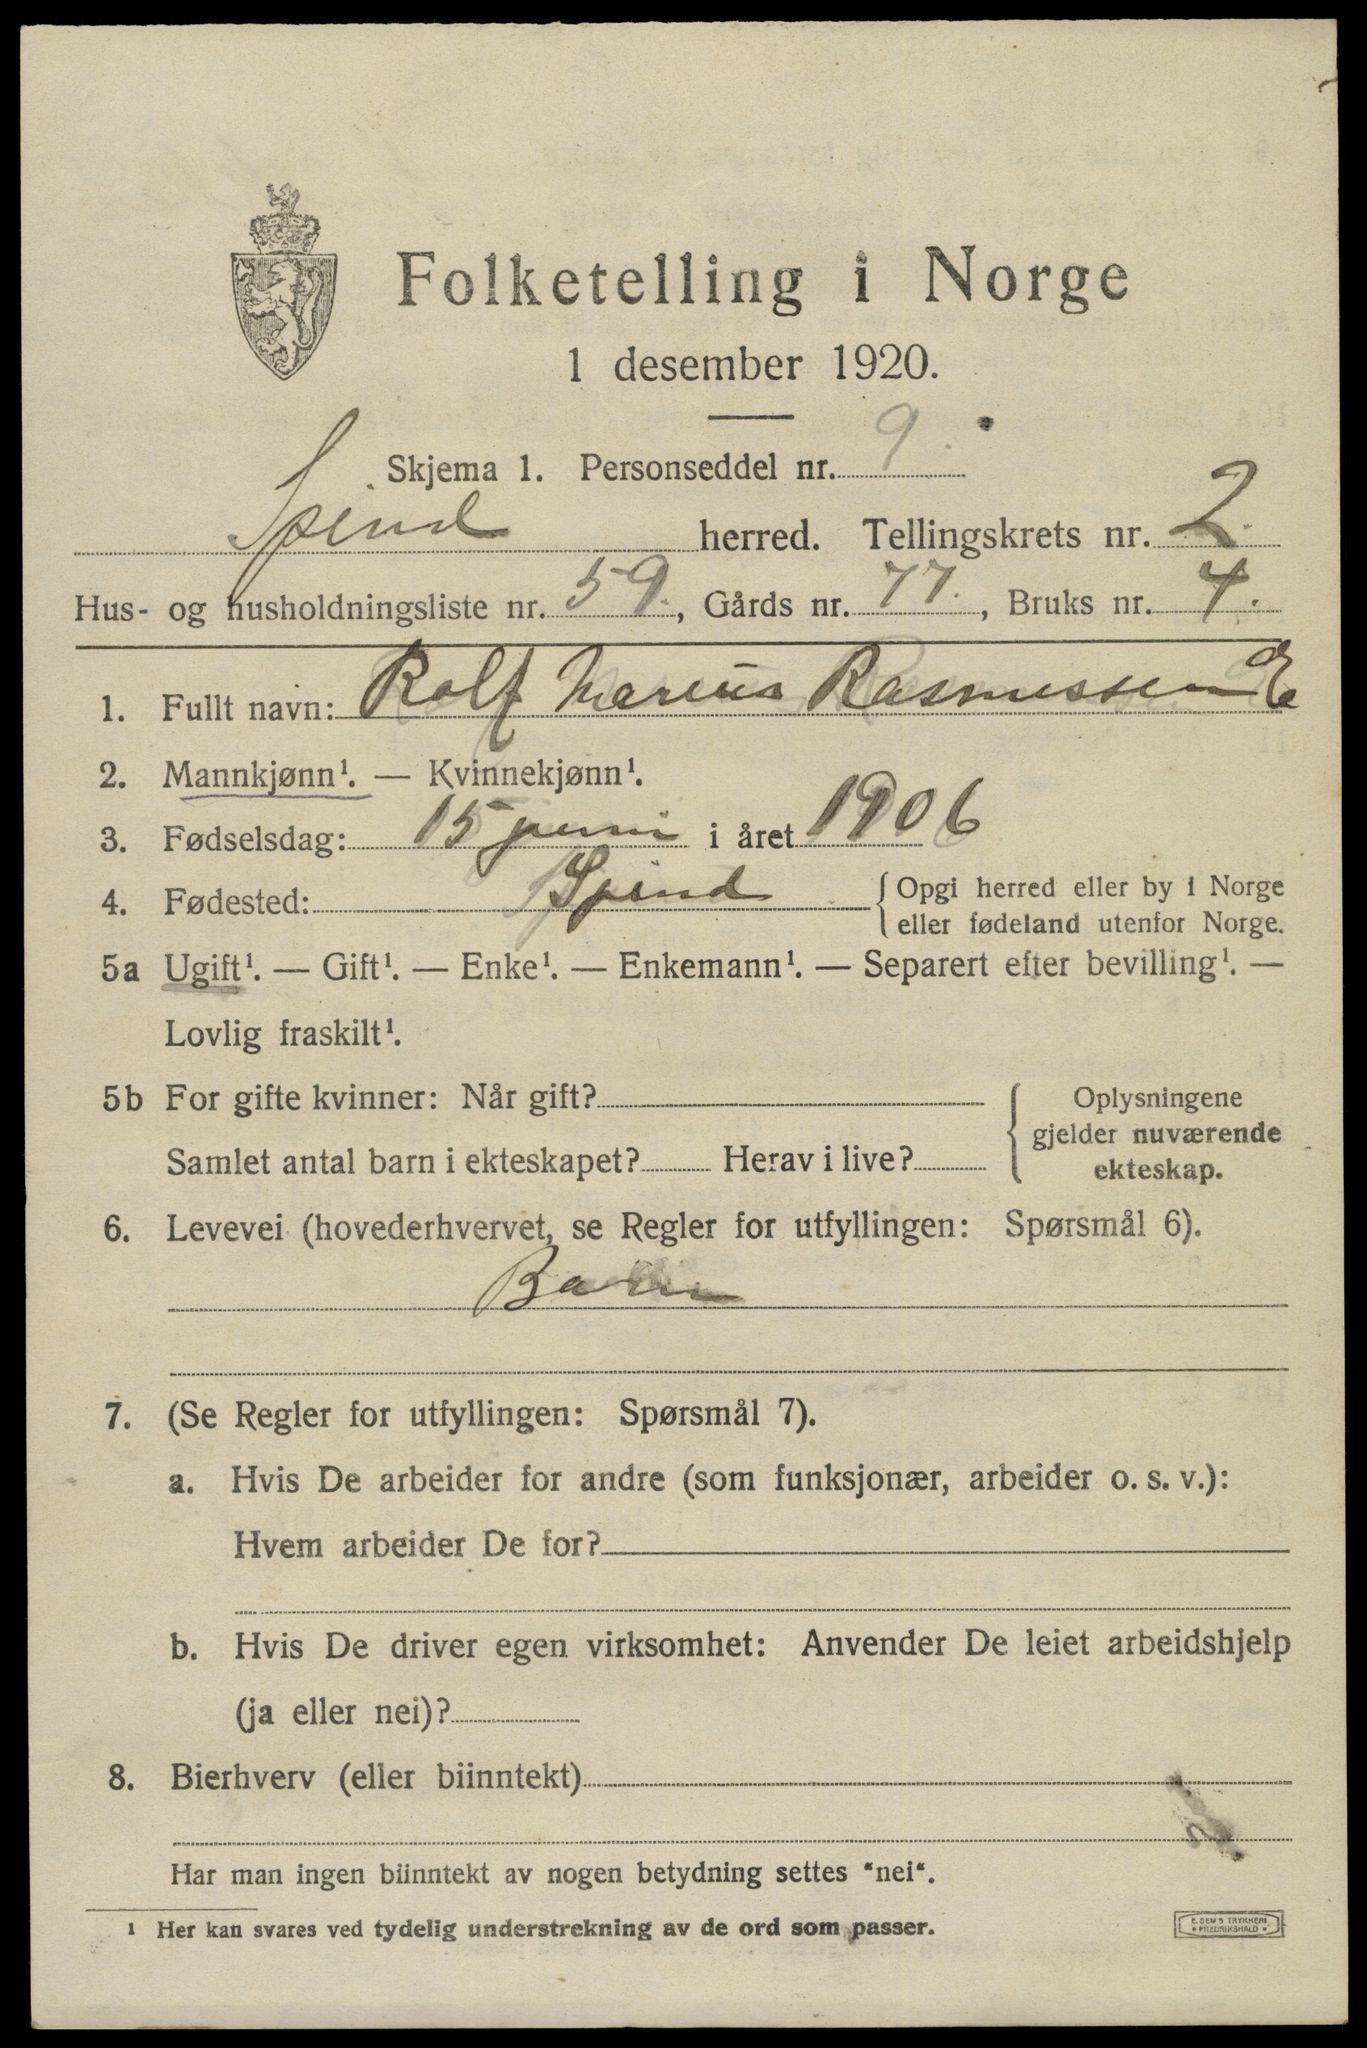 Folketelling i Norge
1 desember 1920.
Skjema 1. Personseddel nr. 9.
Spind herred. Tellingskrets nr. 2.
Hus- og husholdningsliste nr. 59., Gårds nr. 77., Bruks nr. 4.
1. Fullt navn: Rolf Marius Rasmussen
2. Mannkjønn¹. — Kvinnekjønn¹.
3. Fødselsdag: 15 juni i året 1906
4. Fødested: Spind { Opgi herred eller by i Norge
eller fødeland utenfor Norge.
5a Ugift¹. — Gift¹. — Enke¹. — Enkemann¹. — Separert efter bevilling¹. —
Lovlig fraskilt¹.
5b For gifte kvinner: Når gift? { Oplysningene
gjelder nuværende
Samlet antal barn i ekteskapet? Herav i live?
ekteskap.
6. Levevei (hovederhvervet, se Regler for utfyllingen: Spørsmål 6).
Barn
7. (Se Regler for utfyllingen: Spørsmål 7).
a. Hvis De arbeider for andre (som funksjonær, arbeider o. s. v.):
Hvem arbeider De for?
b. Hvis De driver egen virksomhet: Anvender De leiet arbeidshjelp
(ja eller nei)?
8. Bierhverv (eller biinntekt)
Har man ingen biinntekt av nogen betydning settes "nei".
¹ Her kan svares ved tydelig understrekning av de ord som passer.
E. SEM'S TRYKKERI
FREDRIKSHALD